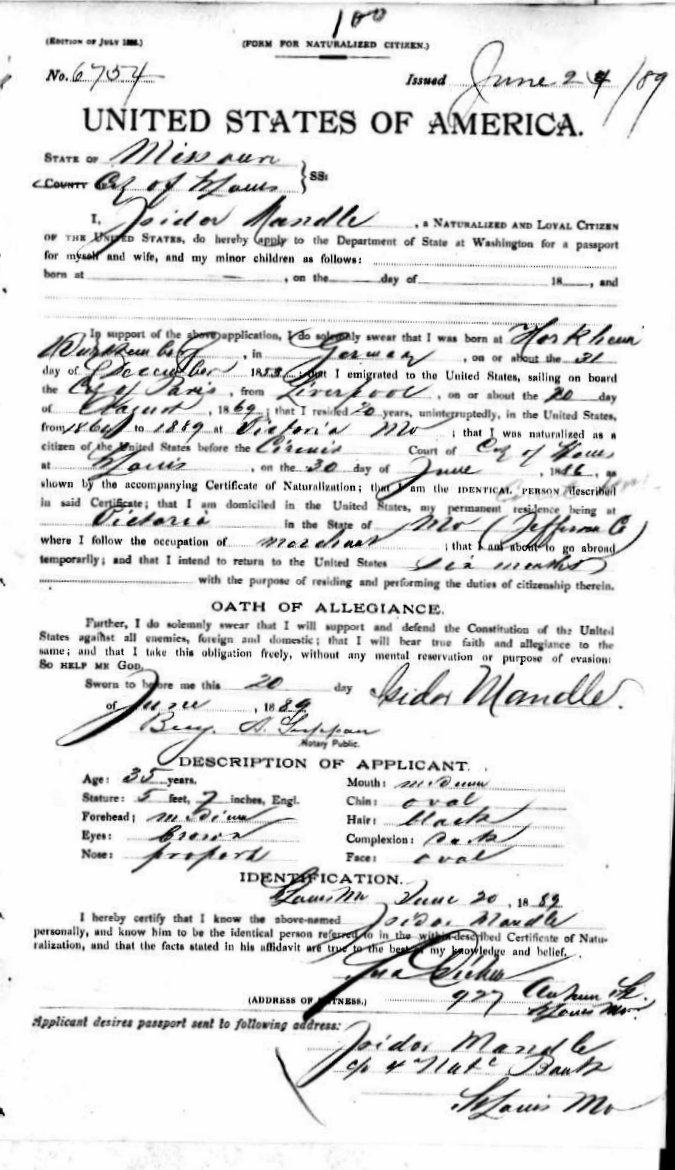 100
(EDITION OF JULY 1888.)
(FORM FOR NATURALIZED CITIZEN.)
No. 6754
Issued June 24/89
UNITED STATES OF AMERICA.
STATE OF Missouri
COUNTY City of St Louis } SS:
I, Isidor Mandle, a NATURALIZED AND LOYAL CITIZEN
OF THE UNITED STATES, do hereby apply to the Department of State at Washington for a passport
for myself and wife, and my minor children as follows:
born at , on the day of 18 , and
In support of the above application, I do solemnly swear that I was born at Horkheim
Wurttemberg, in Germany, on or about the 31
day of December 1853; that I emigrated to the United States, sailing on board
the City of Paris, from Liverpool, on or about the 20 day
of August, 1869; that I resided 20 years, uninterruptedly, in the United States,
from 1869 to 1889 at Victoria Mo; that I was naturalized as a
citizen of the United States before the Circuit Court of City of St Louis
at St Louis, on the 30 day of June, 1886, as
shown by the accompanying Certificate of Naturalization; that I am the IDENTICAL PERSON described
in said Certificate; that I am domiciled in the United States, my permanent residence being at
Victoria in the State of Mo (Jefferson Co)
where I follow the occupation of merchant; that I am about to go abroad
temporarily; and that I intend to return to the United States six months
with the purpose of residing and performing the duties of citizenship therein.
OATH OF ALLEGIANCE.
Further, I do solemnly swear that I will support and defend the Constitution of the United
States against all enemies, foreign and domestic; that I will bear true faith and allegiance to the
same; and that I take this obligation freely, without any mental reservation or purpose of evasion:
SO HELP ME GOD.
Sworn to before me this 20 day Isidor Mandle.
of June, 1889
A.
Notary Public.
DESCRIPTION OF APPLICANT.
Age: 35 years. Mouth: medium
Stature: 5 feet, 7 inches, Engl. Chin: oval
Forehead: medium Hair: black
Eyes: brown Complexion: dark
Nose: proport Face: oval
IDENTIFICATION.
St Louis Mo June 20, 1889
I hereby certify that I know the above-named Isidor Mandle
personally, and know him to be the identical person referred to in the within-described Certificate of Natu-
ralization, and that the facts stated in his affidavit are true to the best of my knowledge and belief.
(ADDRESS OF WITNESS.) 927
St Louis Mo.
Applicant desires passport sent to following address:
Isidor Mandle
c/o 4 Natl Bank
St Louis Mo